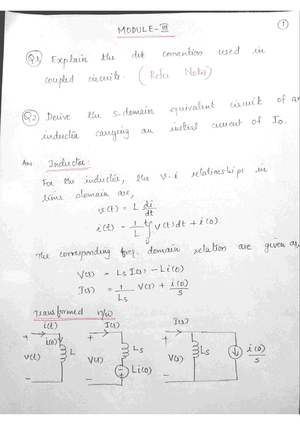 1
MODULE-III
Q.1 Explain the dot convention used in
coupled circuits. (Refer Notes)
Q.2 Derive the s-domain equivalent circuit of an
inductor carrying an initial current of I₀.
Ans: Inductor:
For the inductor, the v-i relationships in
time domain are,
v(t) = L di/dt
i(t) = 1/L ∫₀ᵗ v(t) dt + i(0)
The corresponding freq. domain relation are given as,
V(s) = Ls I(s) - Li(0)
I(s) = 1/Ls V(s) + i(0)/s
Transformed n/w
i(t) I(s) I(s)
+ i(0) + +
v(t) L V(s) Ls V(s) Ls i(0)/s
Li(0)
- - -